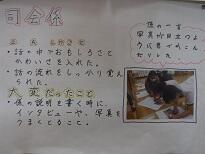 司会係
工夫したこと
・話の中でおもしろさと
かわいさを入れた。
・話の流れをしっかり覚え
られた。
大変だったこと
・係の説明を書く時に、
インタビューや、写真を
うまくとること。
係の一言
写真が目立つよ
うに